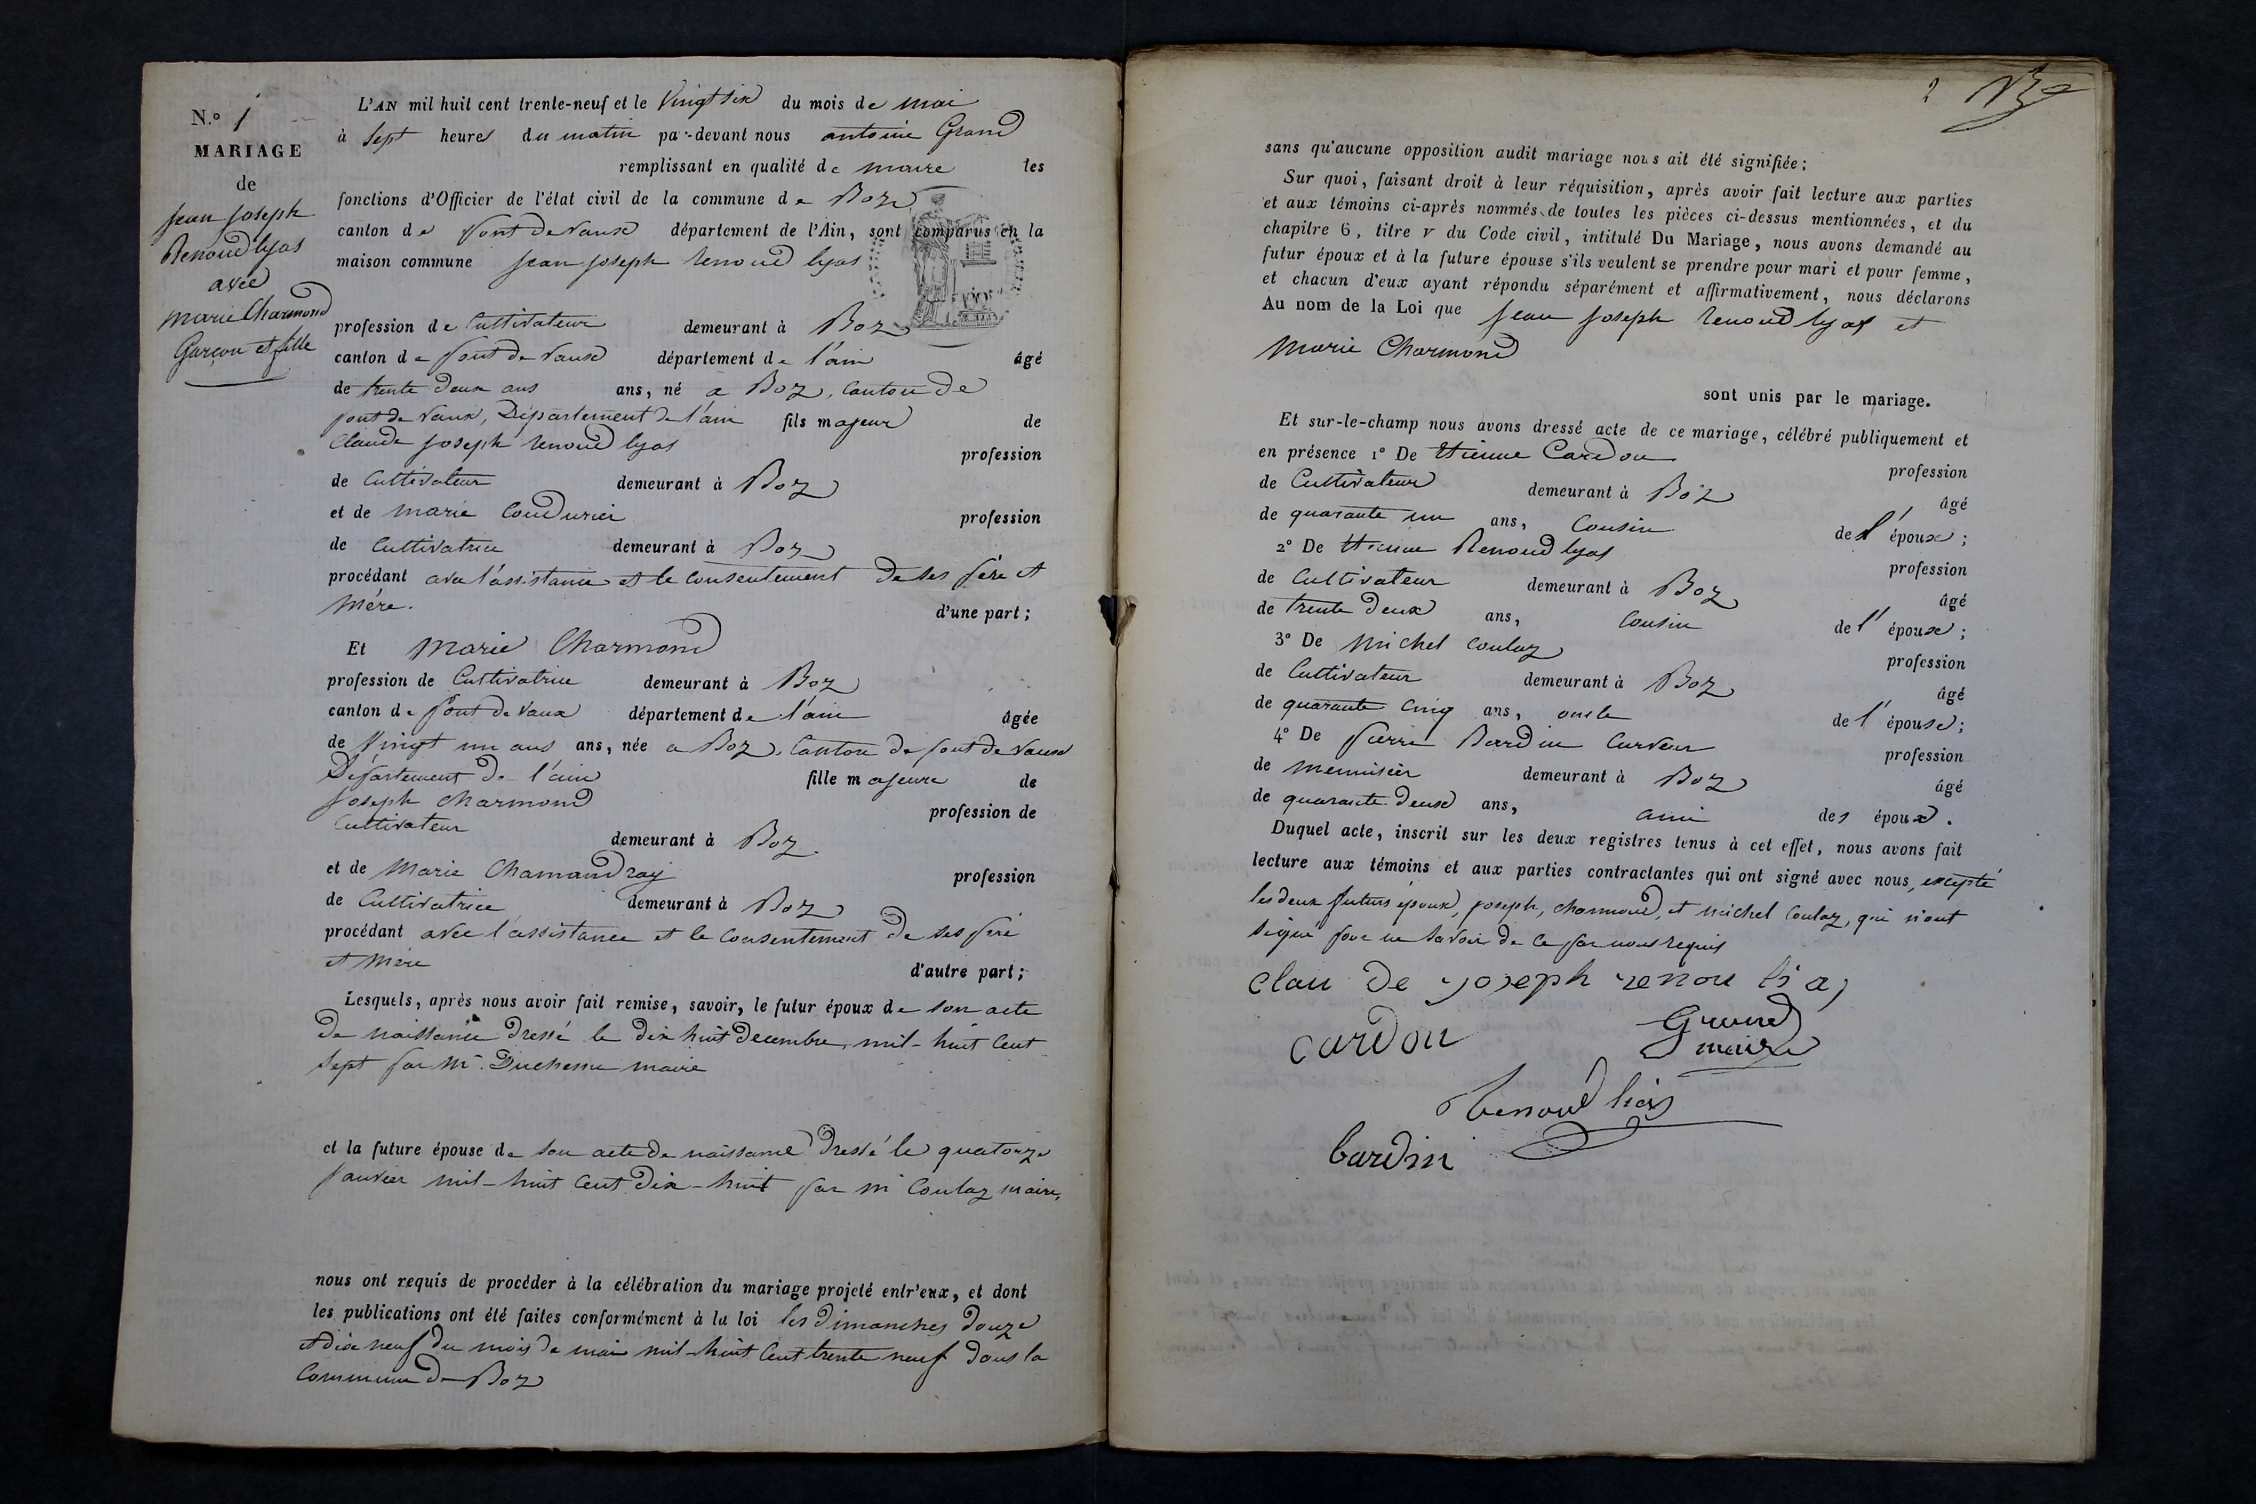 N.° 1
MARIAGE
de
Jean Joseph
Renoud lyas
avec
Marie Charmond
Garçon et fille
L'AN mil huit cent trente-neuf et le Vingt six du mois de mai
à sept heures du matin par-devant nous antoine Grand
remplissant en qualité de maire les
fonctions d'Officier de l'état civil de la commune de Boz
canton de Pont de Vaux département de l'Ain, sont comparus en la
maison commune Jean Joseph Renoud lyas
profession de Cultivateur demeurant à Boz
canton de Pont de Vaux département de l'ain âgé
de trente deux ans ans, né a Boz, Canton de
pont de Vaux, Département de l'ain fils majeur de
Claude Joseph renoud lyas
profession
de Cultivateur demeurant à Boz
et de marie Coudurier profession
de Cultivatrice demeurant à Boz
procédant avec l'assistance et le consentement de ses père et
mère. d'une part;
Et Marie Charmond
profession de Cultivatrice demeurant à Boz
canton de Pont de Vaux département de l'ain âgée
de Vingt un ans ans, née a Boz, Canton de pont de Vaux
Département de l'ain fille majeure de
Joseph Charmond
profession de
Cultivateur demeurant à Boz
et de Marie Chamandray profession
de Cultivatrice demeurant à Boz
procédant avec l'assistance et le consentement de ses père
et mère d'autre part;
Lesquels, après nous avoir fait remise, savoir, le futur époux de son acte
de naissance dressé le dix huit Decembre mil-huit Cent
sept par Mr. Duchesne maire
et la future épouse de son acte de naissance dressé le quatorze
Janvier mil-huit Cent dix-huit par mr Coulaz maire,
nous ont requis de procéder à la célébration du mariage projeté entr'eux, et dont
les publications ont été faites conformément à la loi les dimanches douze
et dix neuf du mois de mai mil-huit Cent trente neuf dans la
Commune de Boz
2
sans qu'aucune opposition audit mariage nous ait été signifiée;
Sur quoi, faisant droit à leur réquisition, après avoir fait lecture aux parties
et aux témoins ci-après nommés de toutes les pièces ci-dessus mentionnées, et du
chapitre 6, titre v du Code civil, intitulé Du Mariage, nous avons demandé au
futur époux et à la future épouse s'ils veulent se prendre pour mari et pour femme,
et chacun d'eux ayant répondu séparément et affirmativement, nous déclarons
Au nom de la Loi que Jean Joseph renoud lyas et
Marie Charmond
sont unis par le mariage.
Et sur-le-champ nous avons dressé acte de ce mariage, célébré publiquement et
en présence 1° De Etienne Cardon
profession
de Cultivateur demeurant à Boz
âgé
de quarante un ans, Cousin de l' époux;
2° De Etienne Renoud lyas
profession
de Cultivateur demeurant à Boz
âgé
de trente deux ans, Cousin de l' époux;
3° De Michel Coulaz
profession
de Cultivateur demeurant à Boz
âgé
de quarante Cinq ans, oncle de l' épouse;
4° De Pierre Bardin Curveur
profession
de menuisier demeurant à Boz
âgé
de quarante deux ans, ami des époux.
Duquel acte, inscrit sur les deux registres tenus à cet effet, nous avons fait
lecture aux témoins et aux parties contractantes qui ont signé avec nous, excepté
les deux futurs époux, joseph, charmond, et michel Coulaz, qui n'ont
signé pour ne savoir de ce par nous requis
clau de joseph renou lia
cardon
Grand
maire
Renoud lias
bardin